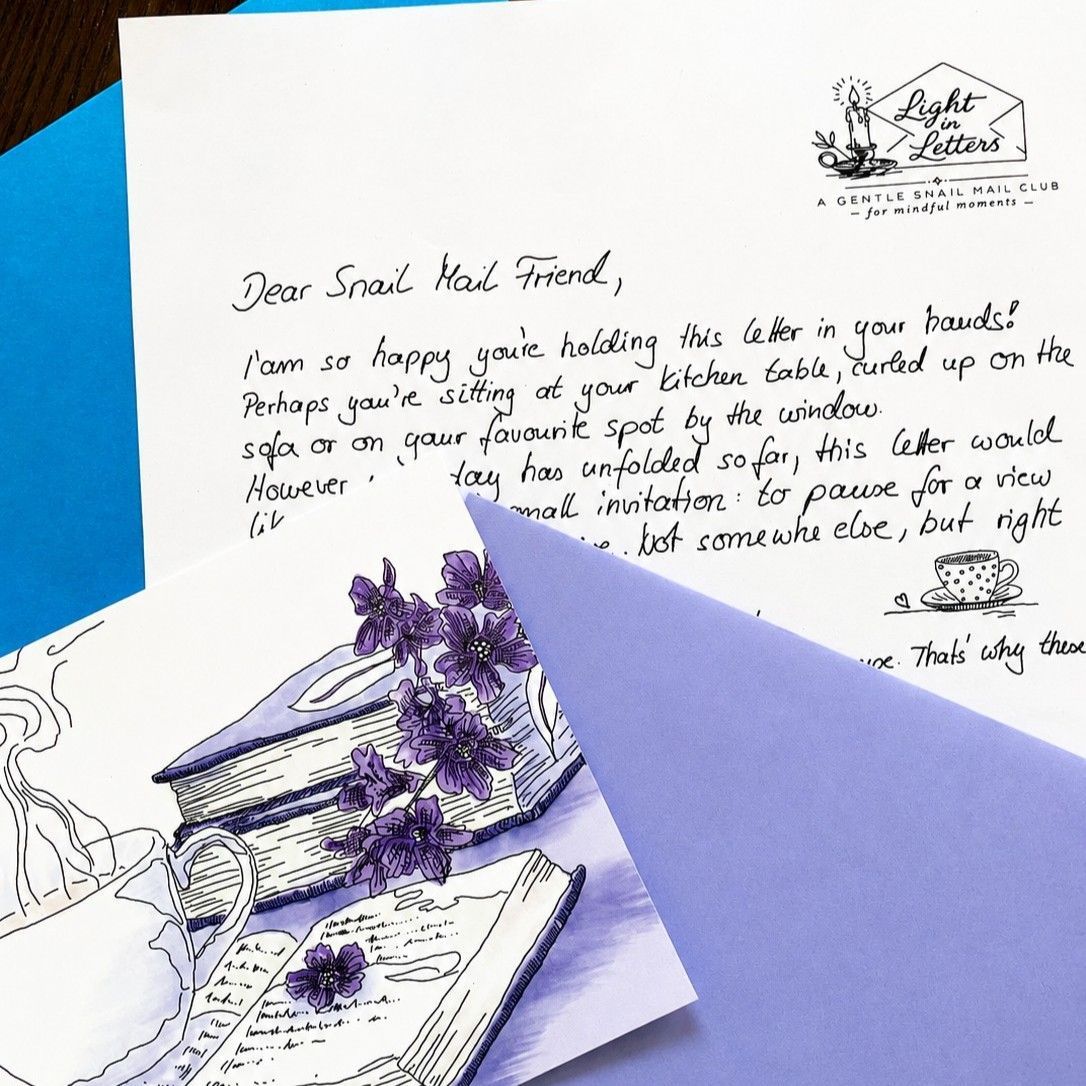 Light
in
Letters
A GENTLE SNAIL MAIL CLUB
— for mindful moments —
Dear Snail Mail Friend,
I'am so happy you're holding this letter in your hands!
Perhaps you're sitting at your kitchen table, curled up on the
sofa or on your favourite spot by the window.
However day has unfolded so far, this letter would
small invitation: to pause for a view
. Not somewhe else, but right
Thats' why these